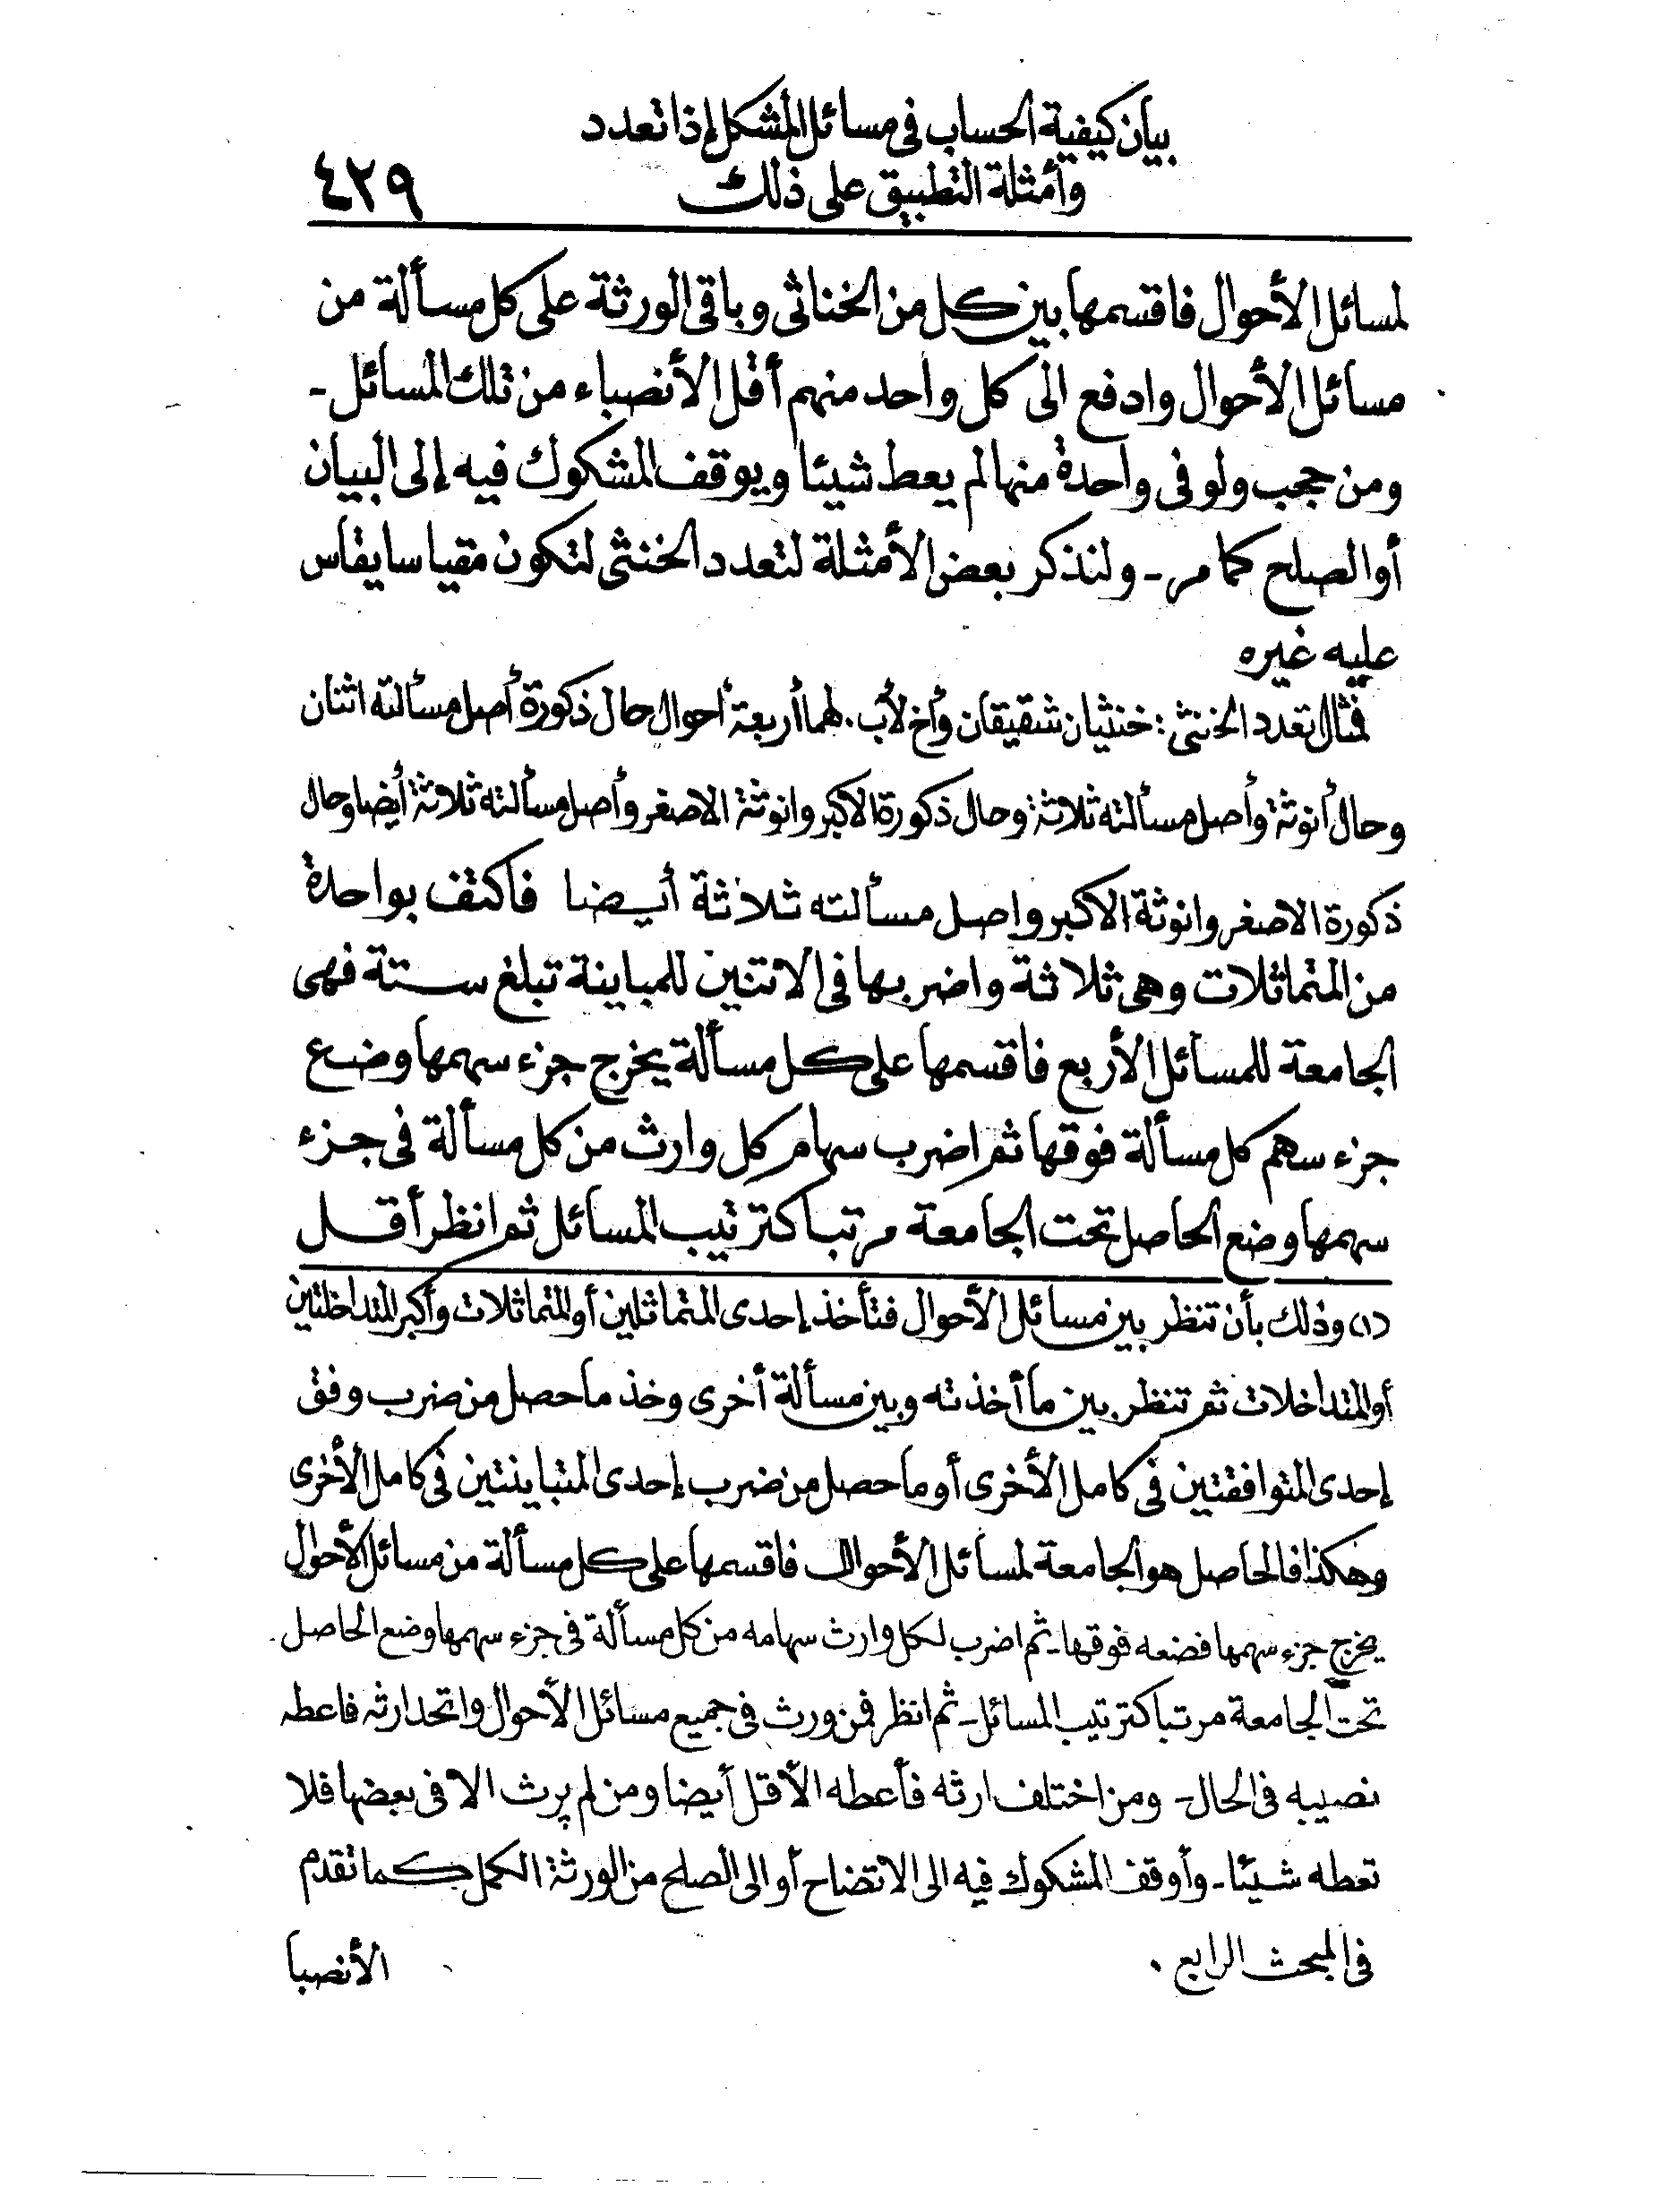 بيان كيفية الحساب فى مسائل المشكل إذا تعدد
وأمثلة التطبيق على ذلك
٤٢٩
لمسائل الأحوال فاقسمها بين كل من الخناثى وباقى الورثة على كل مسألة من
مسائل الأحوال وادفع الى كل واحد منهم أقل الأنصباء من تلك المسائل -
ومن حجب ولو فى واحدة منها لم يعط شيئا ويوقف المشكوك فيه إلى البيان
أو الصلح كما مر - ولنذكر بعض الأمثلة لتعدد الخنثى لتكون مقياسا يقاس
عليه غيره
فمثال تعدد الخنثى : خنثيان شقيقان وأخ لأب . لهما أربعة أحوال حال ذكورة أصل مسألته اثنان
وحال أنوثة وأصل مسألته ثلاثة وحال ذكورة الاكبر وانوثة الاصغر وأصل مسألته ثلاثة أيضا وحال
ذكورة الاصغر وانوثة الاكبر واصل مسألته ثلاثة أيضا فاكتف بواحدة
من المتماثلات وهى ثلاثة واضربها فى الاتنين للمباينة تبلغ ستة فهى
الجامعة للمسائل الأربع فاقسمها على كل مسألة يخرج جزء سهمها وضع
جزء سهم كل مسألة فوقها ثم اضرب سهام كل وارث من كل مسألة فى جزء
سهمها وضع الحاصل تحت الجامعة مرتبا كترتيب المسائل ثم انظر أقل
(١) وذلك بأن تنظر بين مسائل الأحوال فتأخذ إحدى المتماثلين أو المتماثلات وأكبر المتداخلتين
أو المتداخلات ثم تنظر بين ما أخذته وبين مسألة أخرى وخذ ما حصل من ضرب وفق
إحدى المتوافقتين فى كامل الأخرى أو ما حصل من ضرب إحدى المتباينتين فى كامل الأخرى
وهكذا فالحاصل هو الجامعة لمسائل الأحوال فاقسمها على كل مسألة من مسائل الأحوال
يخرج جزء سهمها فضعه فوقها - ثم اضرب لكل وارث سهامه من كل مسألة فى جزء سهمها وضع الحاصل
تحت الجامعة مرتبا كترتيب المسائل - ثم انظر فمن ورث فى جميع مسائل الأحوال واتحد ارثه فاعطه
نصيبه فى الحال - ومن اختلف ارثه فأعطه الأقل أيضا ومن لم يرث الا فى بعضها فلا
تعطه شيئا - وأوقف المشكوك فيه الى الاتضاح أو الى الصلح من الورثة الكمل كما تقدم
فى المبحث الرابع .
الأنصبا